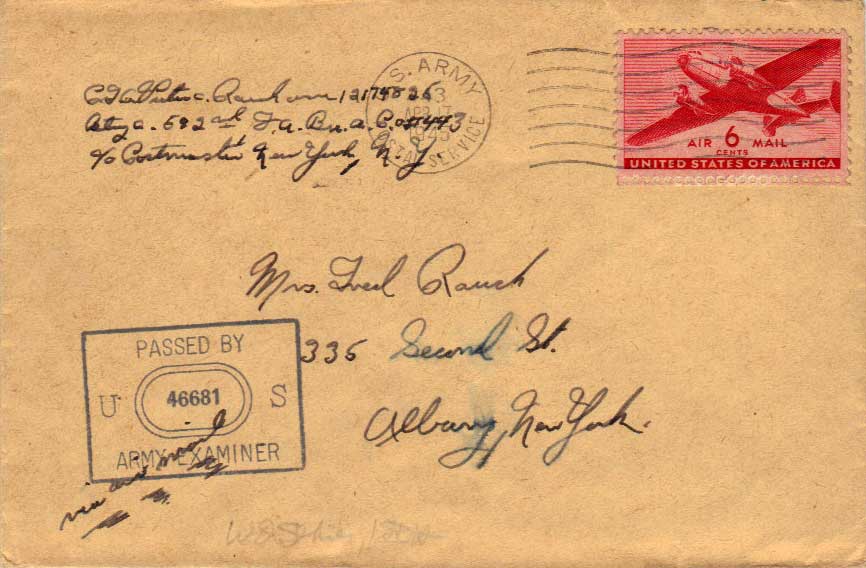 12174826
Btry C. 592nd F.A. Bn. A.P.O. 443
c/o Postmaster New York, N.Y.
U.S. ARMY
APR 17
1945
POSTAL SERVICE
AIR 6 MAIL
CENTS
UNITED STATES OF AMERICA
Mrs. Fred Rauch
335 Second St.
Albany, New York.
PASSED BY
U 46681 S
ARMY EXAMINER
via air mail